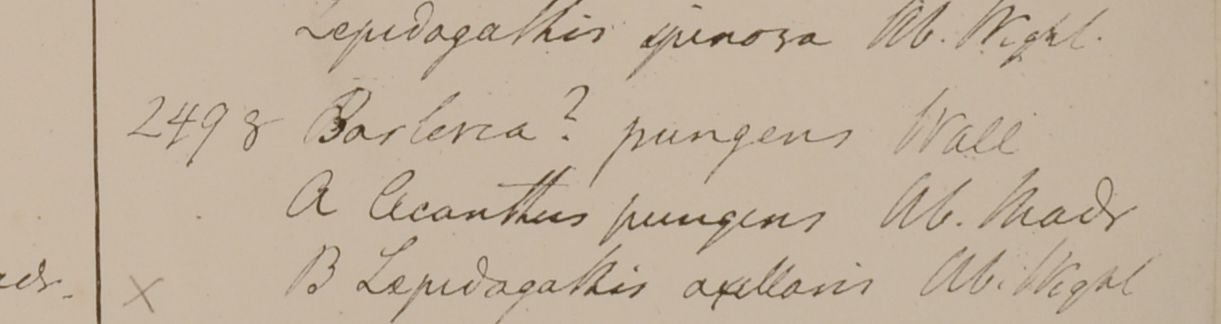 Lepidagathis spinosa Hb. Wight.
2498 Barleria? pungens Wall
A Acanthus pungens Hb. Madr
B Lepidagathis axillaris Hb. Wight
adr. X